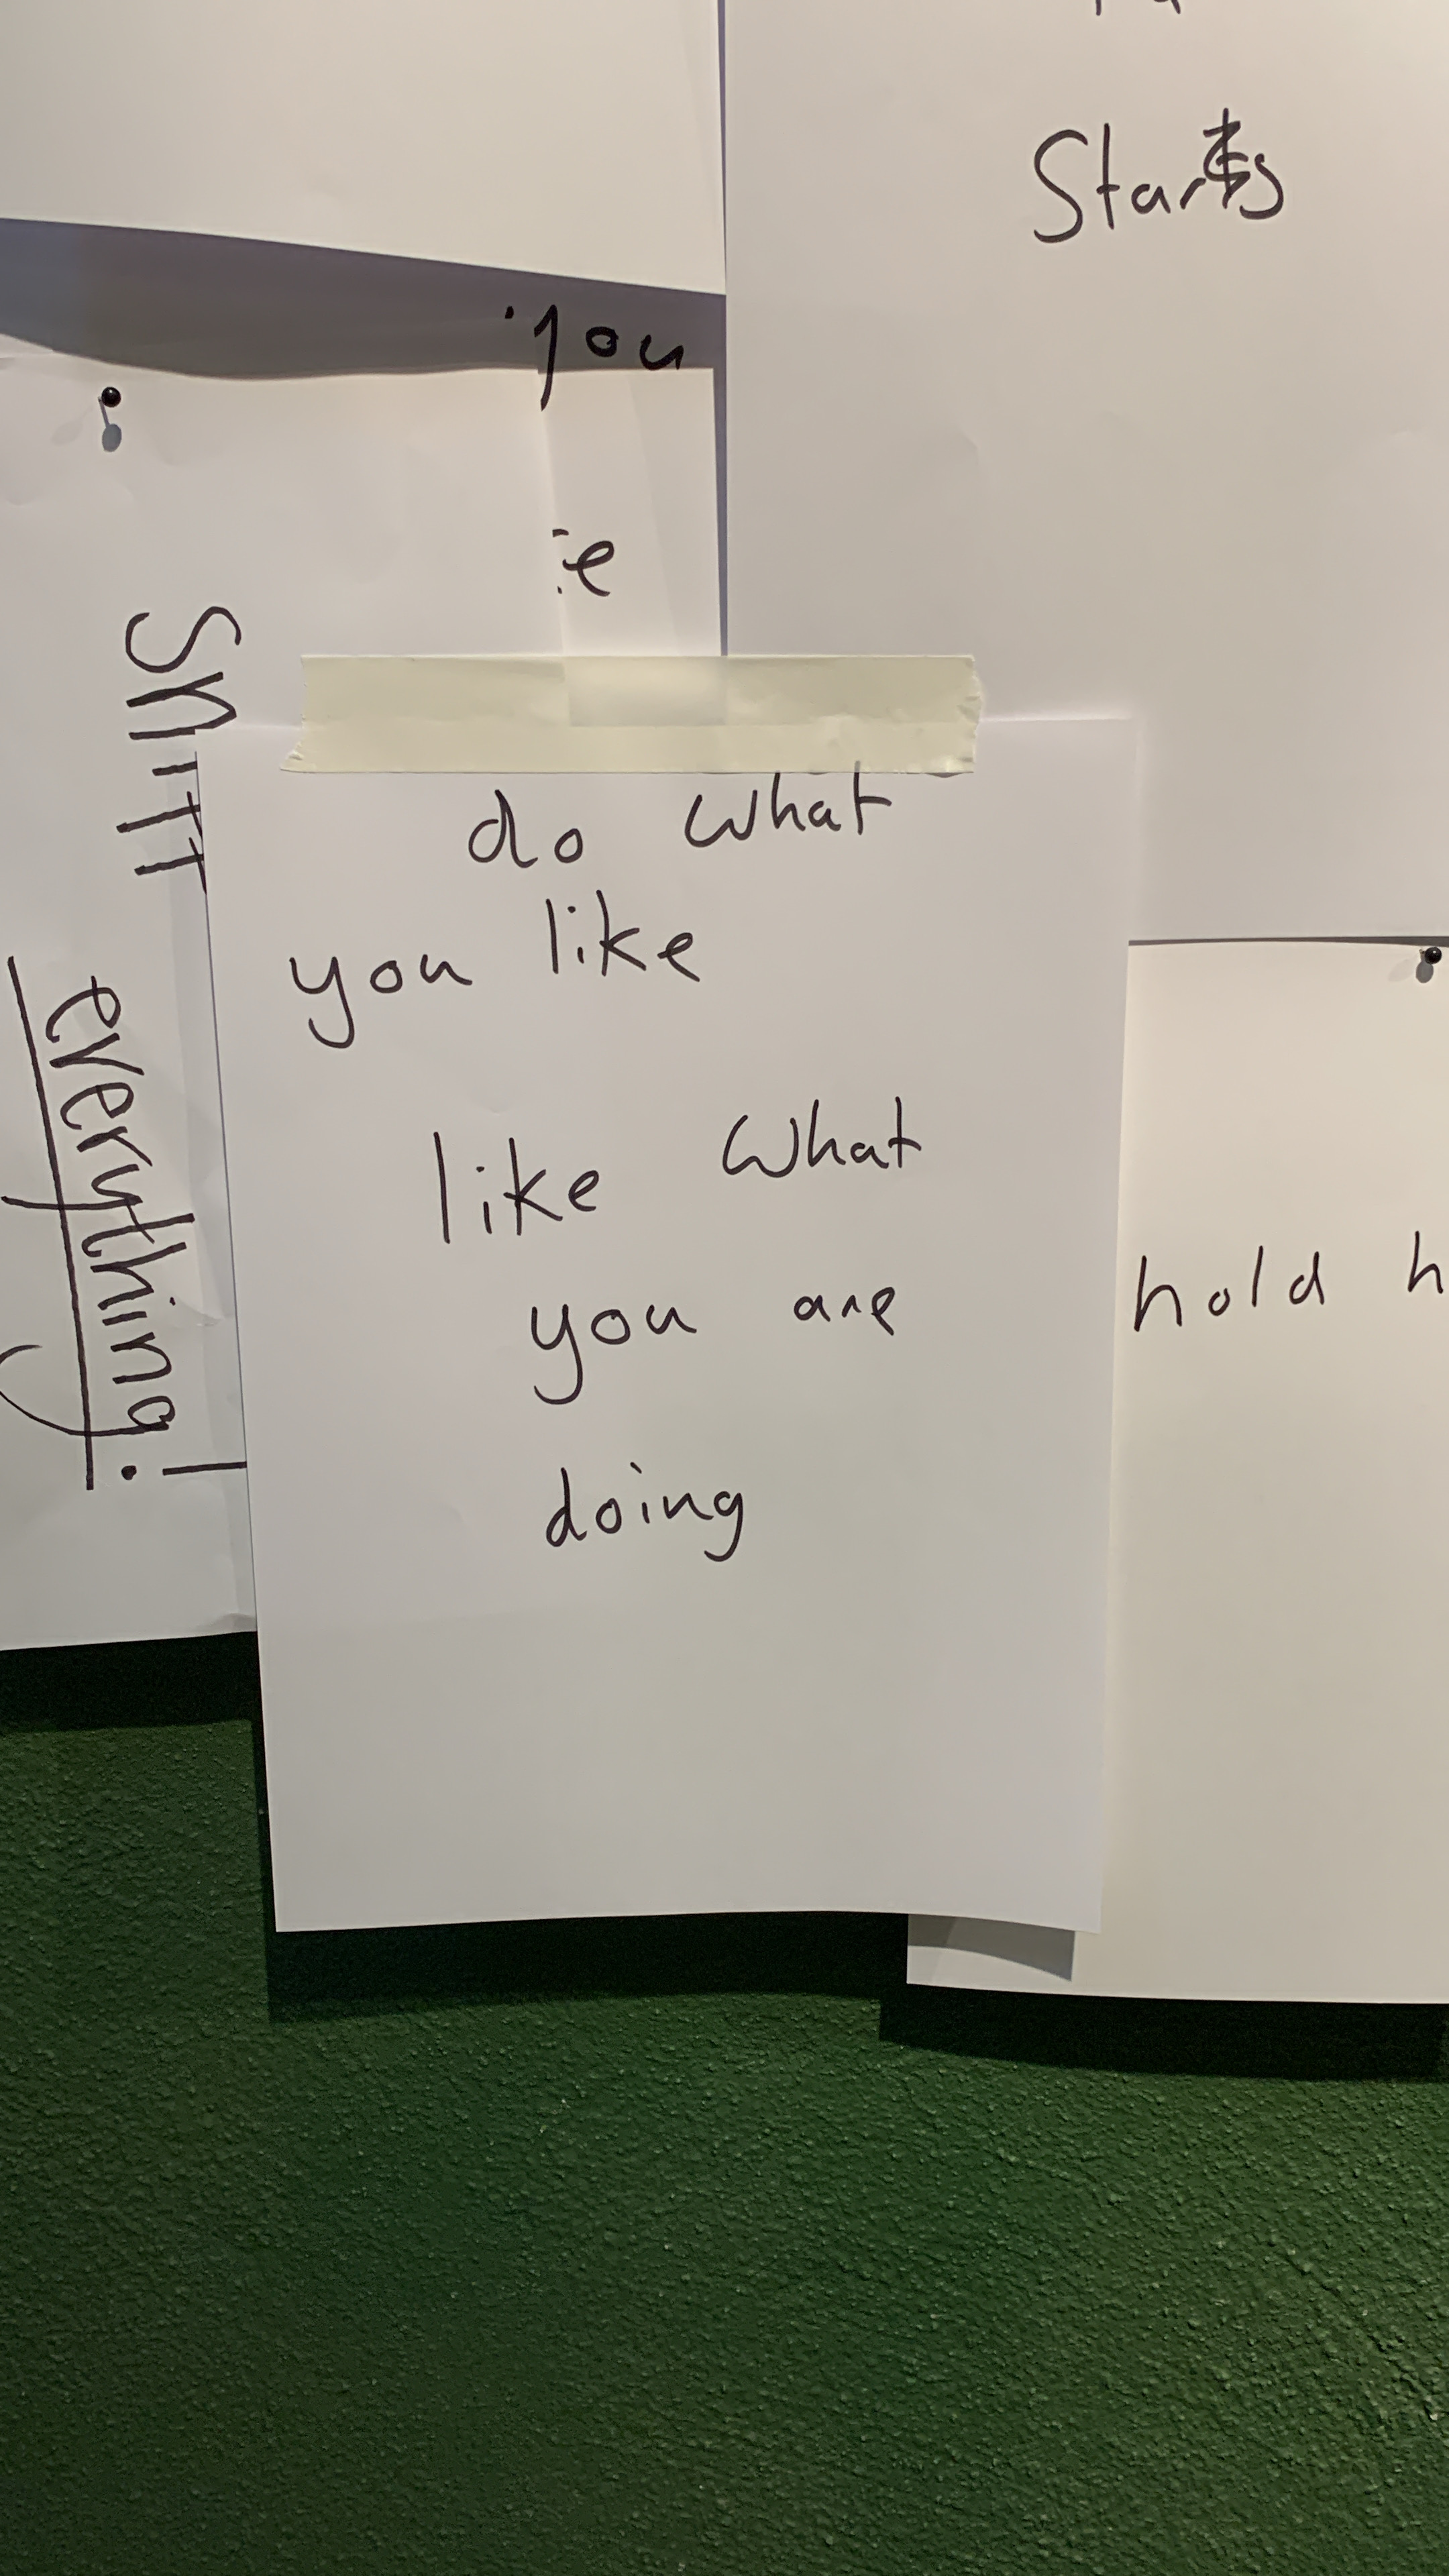 Starts
you
do what
you like
like what
you are
doing
everything!
hold